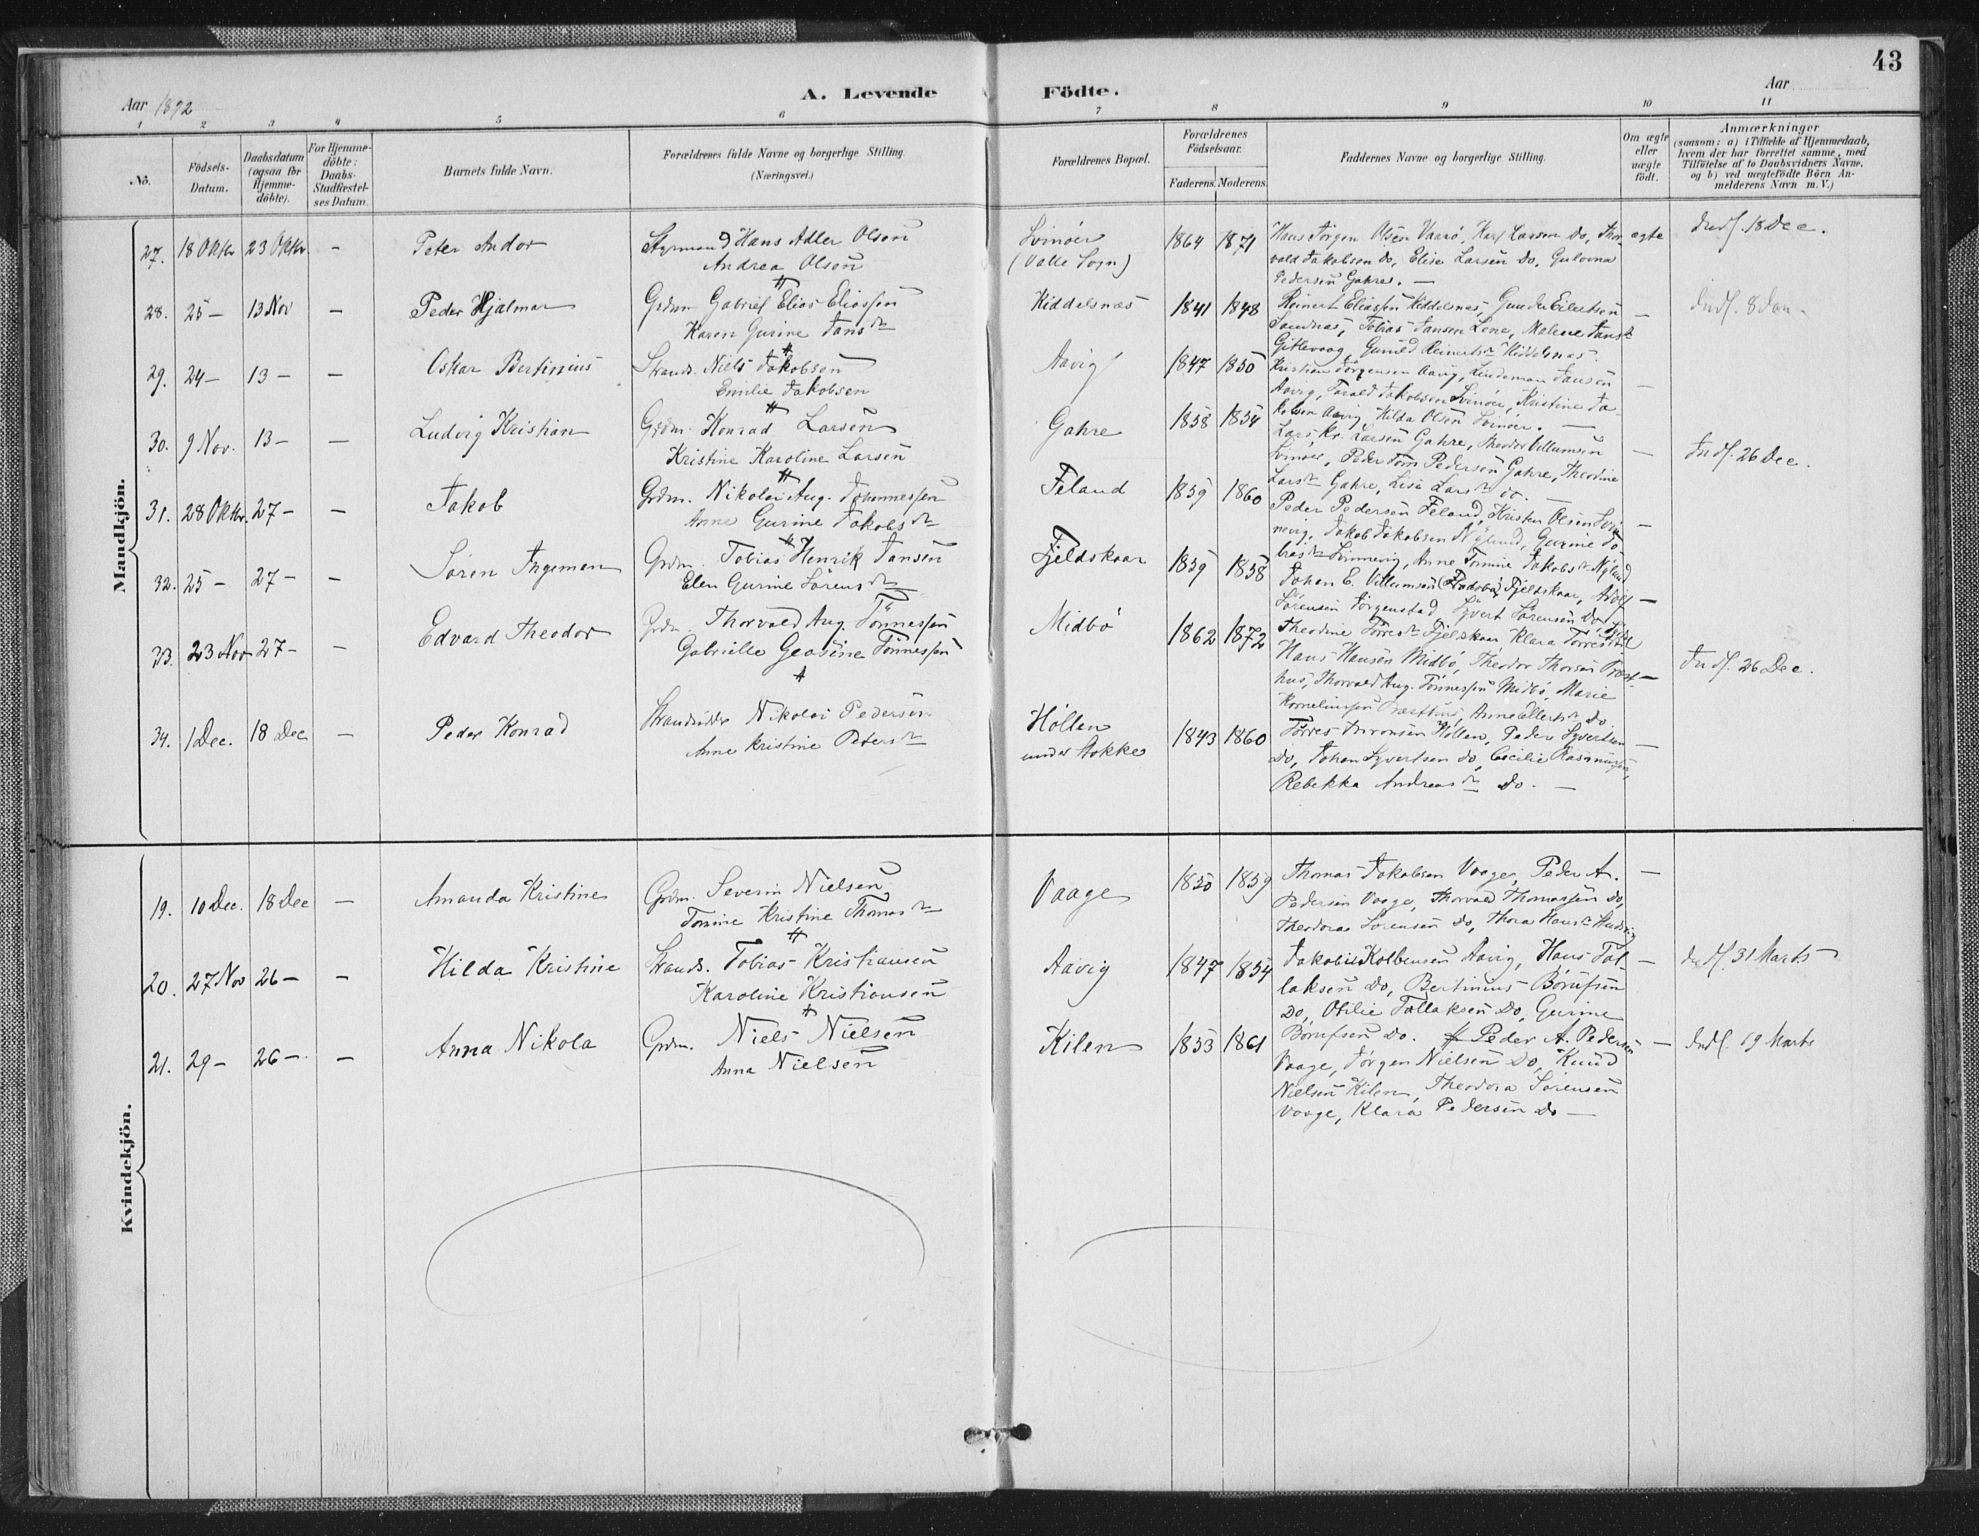 43
Aar 1892
A. Levende Födte.
Aar
1 2 3 4 5 6 7 8 9 10 11
No.
Födsels-Datum.
Daabsdatum (ogsaa for Hjemme-döbte).
For Hjemme-döbte: Daabs-Stadfæstel-ses Datum.
Barnets fulde Navn.
Forældrenes fulde Navne og borgerlige Stilling
(Næringsvei.)
Forældrenes Bopæl.
Forældrenes Födselsaar.
Faderens. Moderens.
Faddernes Navne og borgerlige Stilling.
Om ægte eller uægte födt.
Anmærkninger
(saasom: a) i Tilfælde af Hjemmedaab, hvem der har forrettet samme, med Tilföielse af to Daabsvidners Navne, og b) ved uægtefödte Börn An-melderens Navn m. V.)
Mandkjön.
27. 18 Oktbr 23 Oktbr - Peter Andor
Styrmand Hans Adler Olsen
Andrea Olsen
Svinøer
(Valle Sogn)
1864 1871
Hans Jörgen Olsen Vaarø, Karl Larsen Do, Thor-
vald Jakobsen Do, Elise Larsen Do, Gulovna
Pedersen Gahre. -
ægte
Indf. 18 Dec.
28. 25 - 13 Nov - Peder Hjalmar
Grdm. Gabriel Elias Eliassen
Karen Gurine Jansdtr
Kiddelsnæs
1841 1848
Reinert Eliassen Kiddelsnes, Gunder Eilertsen
Sandnæs, Tobias Jansen Lene, Malene Jansdtr
Gitlevaag, Gunild Reinertsdtr Kiddelsnæs.
-
Indf. 8 Jan.
29. 24 - 13 - - Oskar Bertinius
Strands. Niels Jakobsen
Emilie Jakobsen
Aavig
1847 1850
Kristian Jörgensen Aavig, Lindeman Jansen
Aavig, Tarald Jakobsen Svinøer, Kristine Ja-
kobsen Aavig, Hilda Olsen Svinöer. -
-
30. 9 Nov. 13 - - Ludvig Kristian
Grdm. Konrad Larsen
Kristine Karoline Larsen
Gahre
1858 1854
Lars Kr. Larsen Gahre, Theodor Villumsen
Svinøer, Peder Tom Pedersen Gahre, Thordine
Larsdtr Gahre, Lise Larsdtr do. -
-
Indf. 26 Dec.
31. 28 Oktbr. 27 - - Jakob
Grdm. Nikolai Aug. Tönnessen
Anne Gurine Jakobsdtr
Feland
1859 1860
Peder Pedersen Feland, Kristen Olsen Svin-
nevig, Jakob Jakobsen Nylund, Gurine To-
biasdtr Svinnevig, Anne Tomine Jakobsdtr Nylund
-
32. 25 - 27 - - Sören Ingeman
Grdm. Tobias Henrik Jansen
Elen Gurine Sörensdtr
Fjeldskaar
1859 1858
Johan E. Villumsen Fjeldskaar, Adolf
Sörensen Jörgenstad, Syvert Sörensen Do,
Theodine Törresdtr Fjeldskaar, Klara Törresdtr
-
33. 23 Nov 27 - - Edvard Theodor
Grdm. Thorvald Aug. Tönnessen
Gabrielle Geasine Tönnessen
Midbö
1862 1872
Hans Hansen Midbö, Theodor Thorsen Præst-
hus, Thorvald Aug. Tönnessen Midbö, Marie
Korneliussen Præsthus, Anne Ellertsdtr Do.
-
Indf. 26 Dec.
34. 1 Dec. 18 Dec - Peder Konrad
Strandsidder Nikolai Pedersen
Anne Kristine Petersdtr
Höllen
under Stokke
1843 1860
Törres Aronsen Höllen, Peder Syvertsen
Do, Johan Syvertsen do, Cecilie Rasmussen,
Rebekka Andreasdtr Do. -
-
Kvindekjön.
19. 10 Dec. 18 Dec - Amanda Kristine
Grdm. Severin Nielsen
Tomine Kristine Thomasdtr
Vaage
1850 1859
Thomas Jakobsen Vaage, Peder A.
Pedersen Vaage, Thorvald Thomassen Do,
Theodora Sörensen Do, Thora Hansdtr
-
20. 27 Nov 26 - - Hilda Kristine
Strands. Tobias Kristiansen
Karoline Kristiansen
Aavig
1847 1854
Jakob Kolbensen Aavig, Hans Tal-
laksen Do, Bertinius Börufsen
Do, Otilie Tallaksen Do, Gurine
Börufsen Do.
-
Indf. 31 Marts
21. 29 - 26 - - Anna Nikola
Grdm. Niels Nielsen
Anna Nielsen
Kilen
1853 1861
Peder A. Pedersen
Vaage, Jörgen Nielsen Do, Knud
Nielsen Kilen, Theodora Sörensen
Vaage, Klara Pedersen Do -
-
Indf. 19 Marts